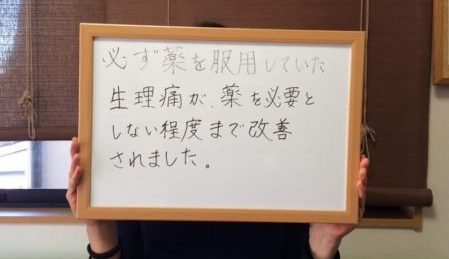 必ず薬を服用していた
生理痛が、薬を必要と
しない程度まで改善
されました。